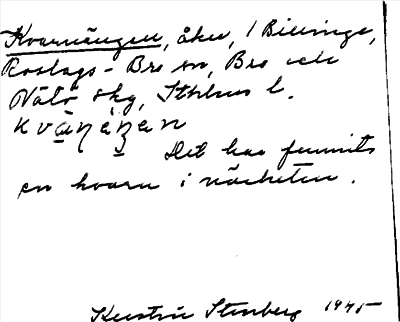 Kvarnängen, åker, 1 Billinge,
Roslags-Bro sn, Bro och
Vätö skg, Sthlms l.
kvàṇèŋen
Det har funnits
en kvarn i närheten.
Kerstin Stenberg 1945